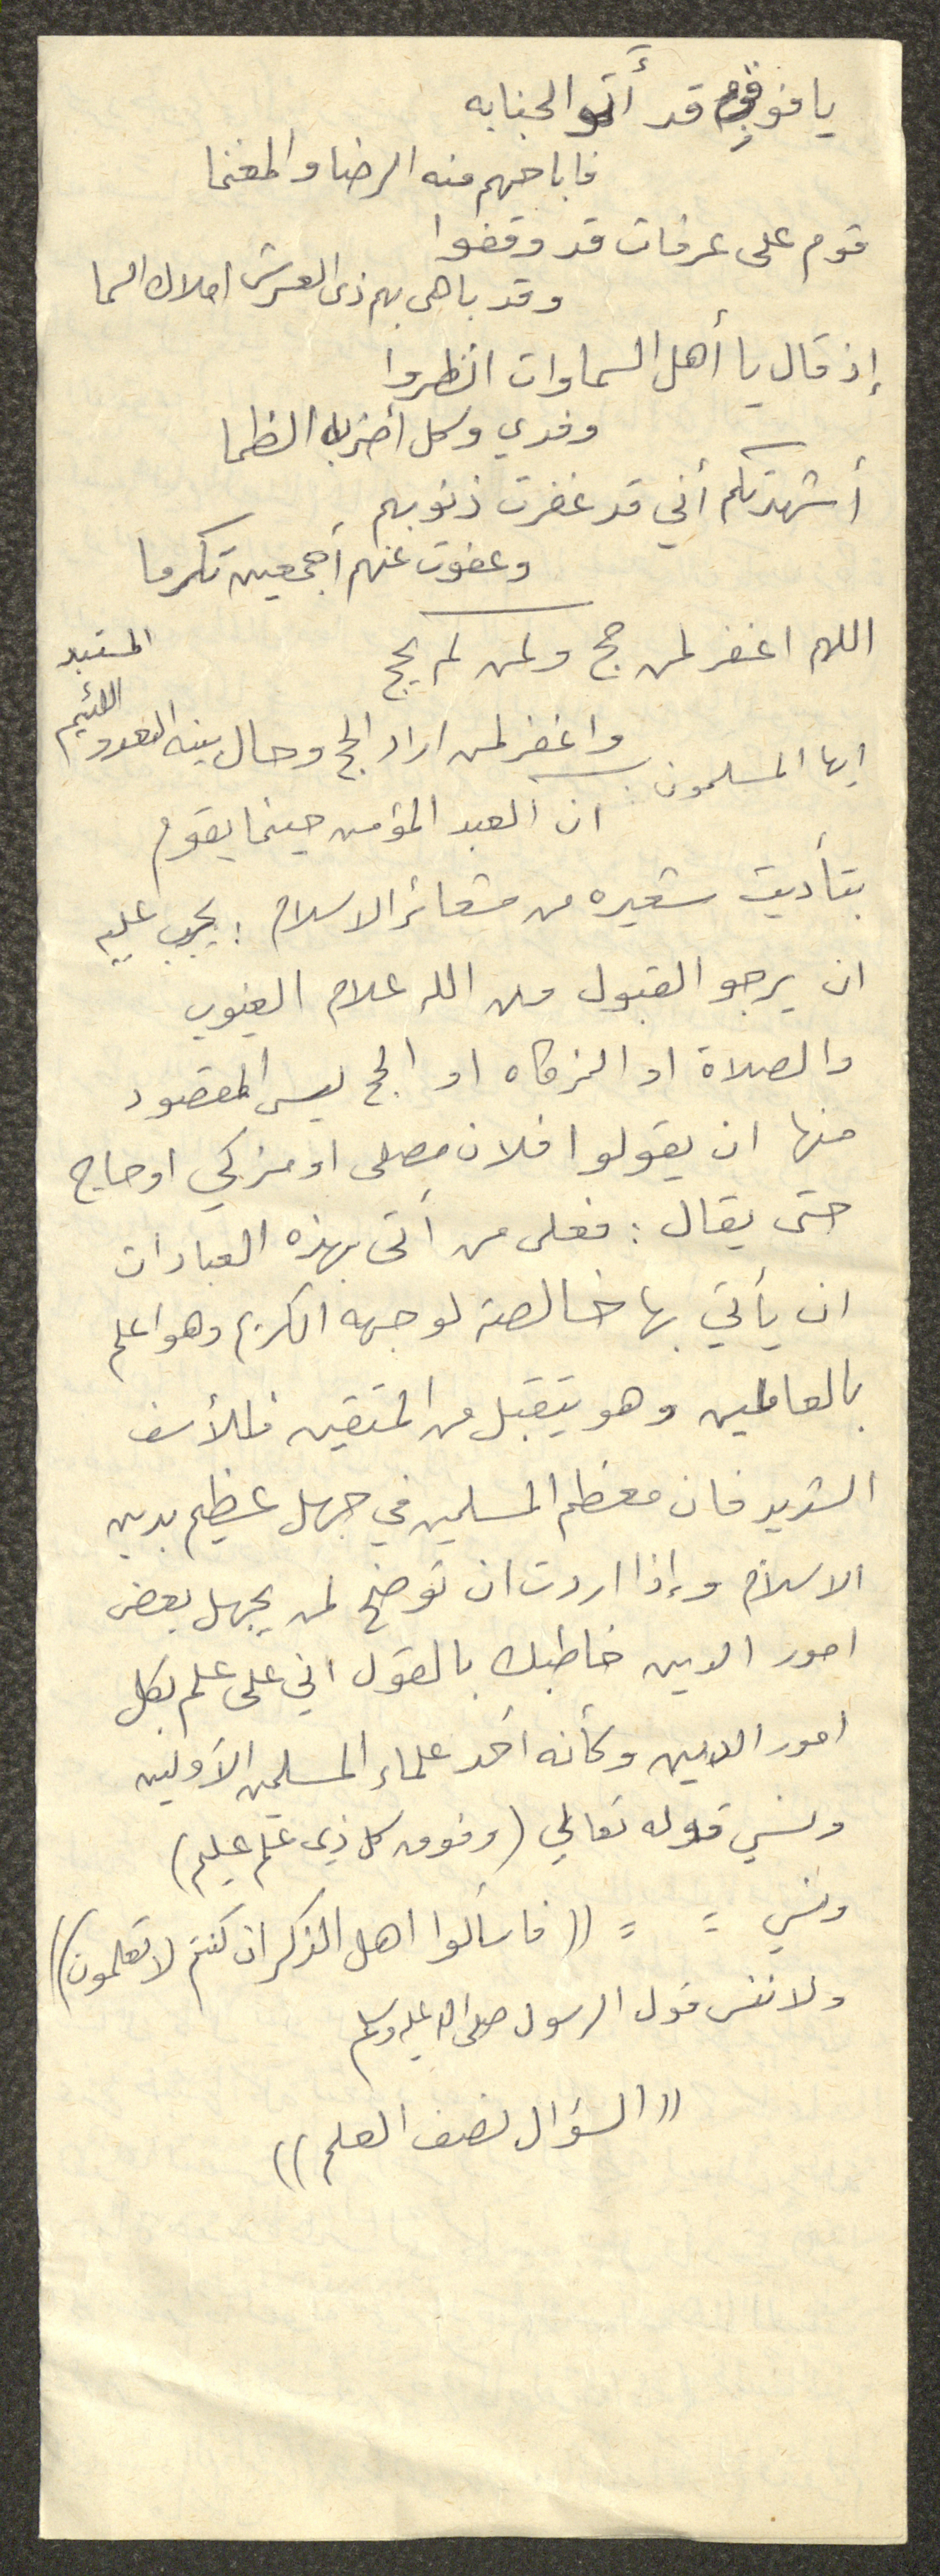 يا فوز قوم قد أتوا لجنابه
فاباحهم منه الرضا والمغنما
قوم على عرفات قد وقفوا
وقد باهى بهم ذى العرش املاك السما
إذ قال يا أهل السماوات انظروا
وفدي وكل أضر به الظما
أشهدتكم أني قد غفرت ذنوبهم
وعفوت عنهم أجمعين تكرما
اللهم اغفر لمن حج ولمن لم يحج
واغفر لمن اراد الحج وحال بينه العدو اللئيم المستبد
ايها المسلمون : ان العبد المؤمن حينما يقوم
بتأديت شعيره من شعائر الاسلام : يجب عليه
ان يرجو القبول من الله علام الغيوب
والصلاة او الزكاه او الحج ليس المقصود
منها ان يقولوا فلان مصلى او مزكي او حاج
حتى يقال : فعلى من أتى بهذه العبادات
ان يأتي بها خالصة لوجهه الكريم وهو اعلم
بالعاملين وهو يتقبل من المتقين فللأسف
الشديد فان معظم المسلمين في جهل عظيم بدين
الاسلام وإذا اردت ان توضح لمن يجهل بعض
امور الدين خاطبك بالقول اني على علم بكل
امور الدين وكأنه أحد علماء المسلمين الأولين
ونسي قوله تعالى (وفوق كل ذي علم عليم)
ونسي = = ((فاسألوا اهل الذكر ان كنتم لا تعلمون))
ولا ننس قول الرسول صلى الله عليه وسلم
((السؤال نصف العلم))